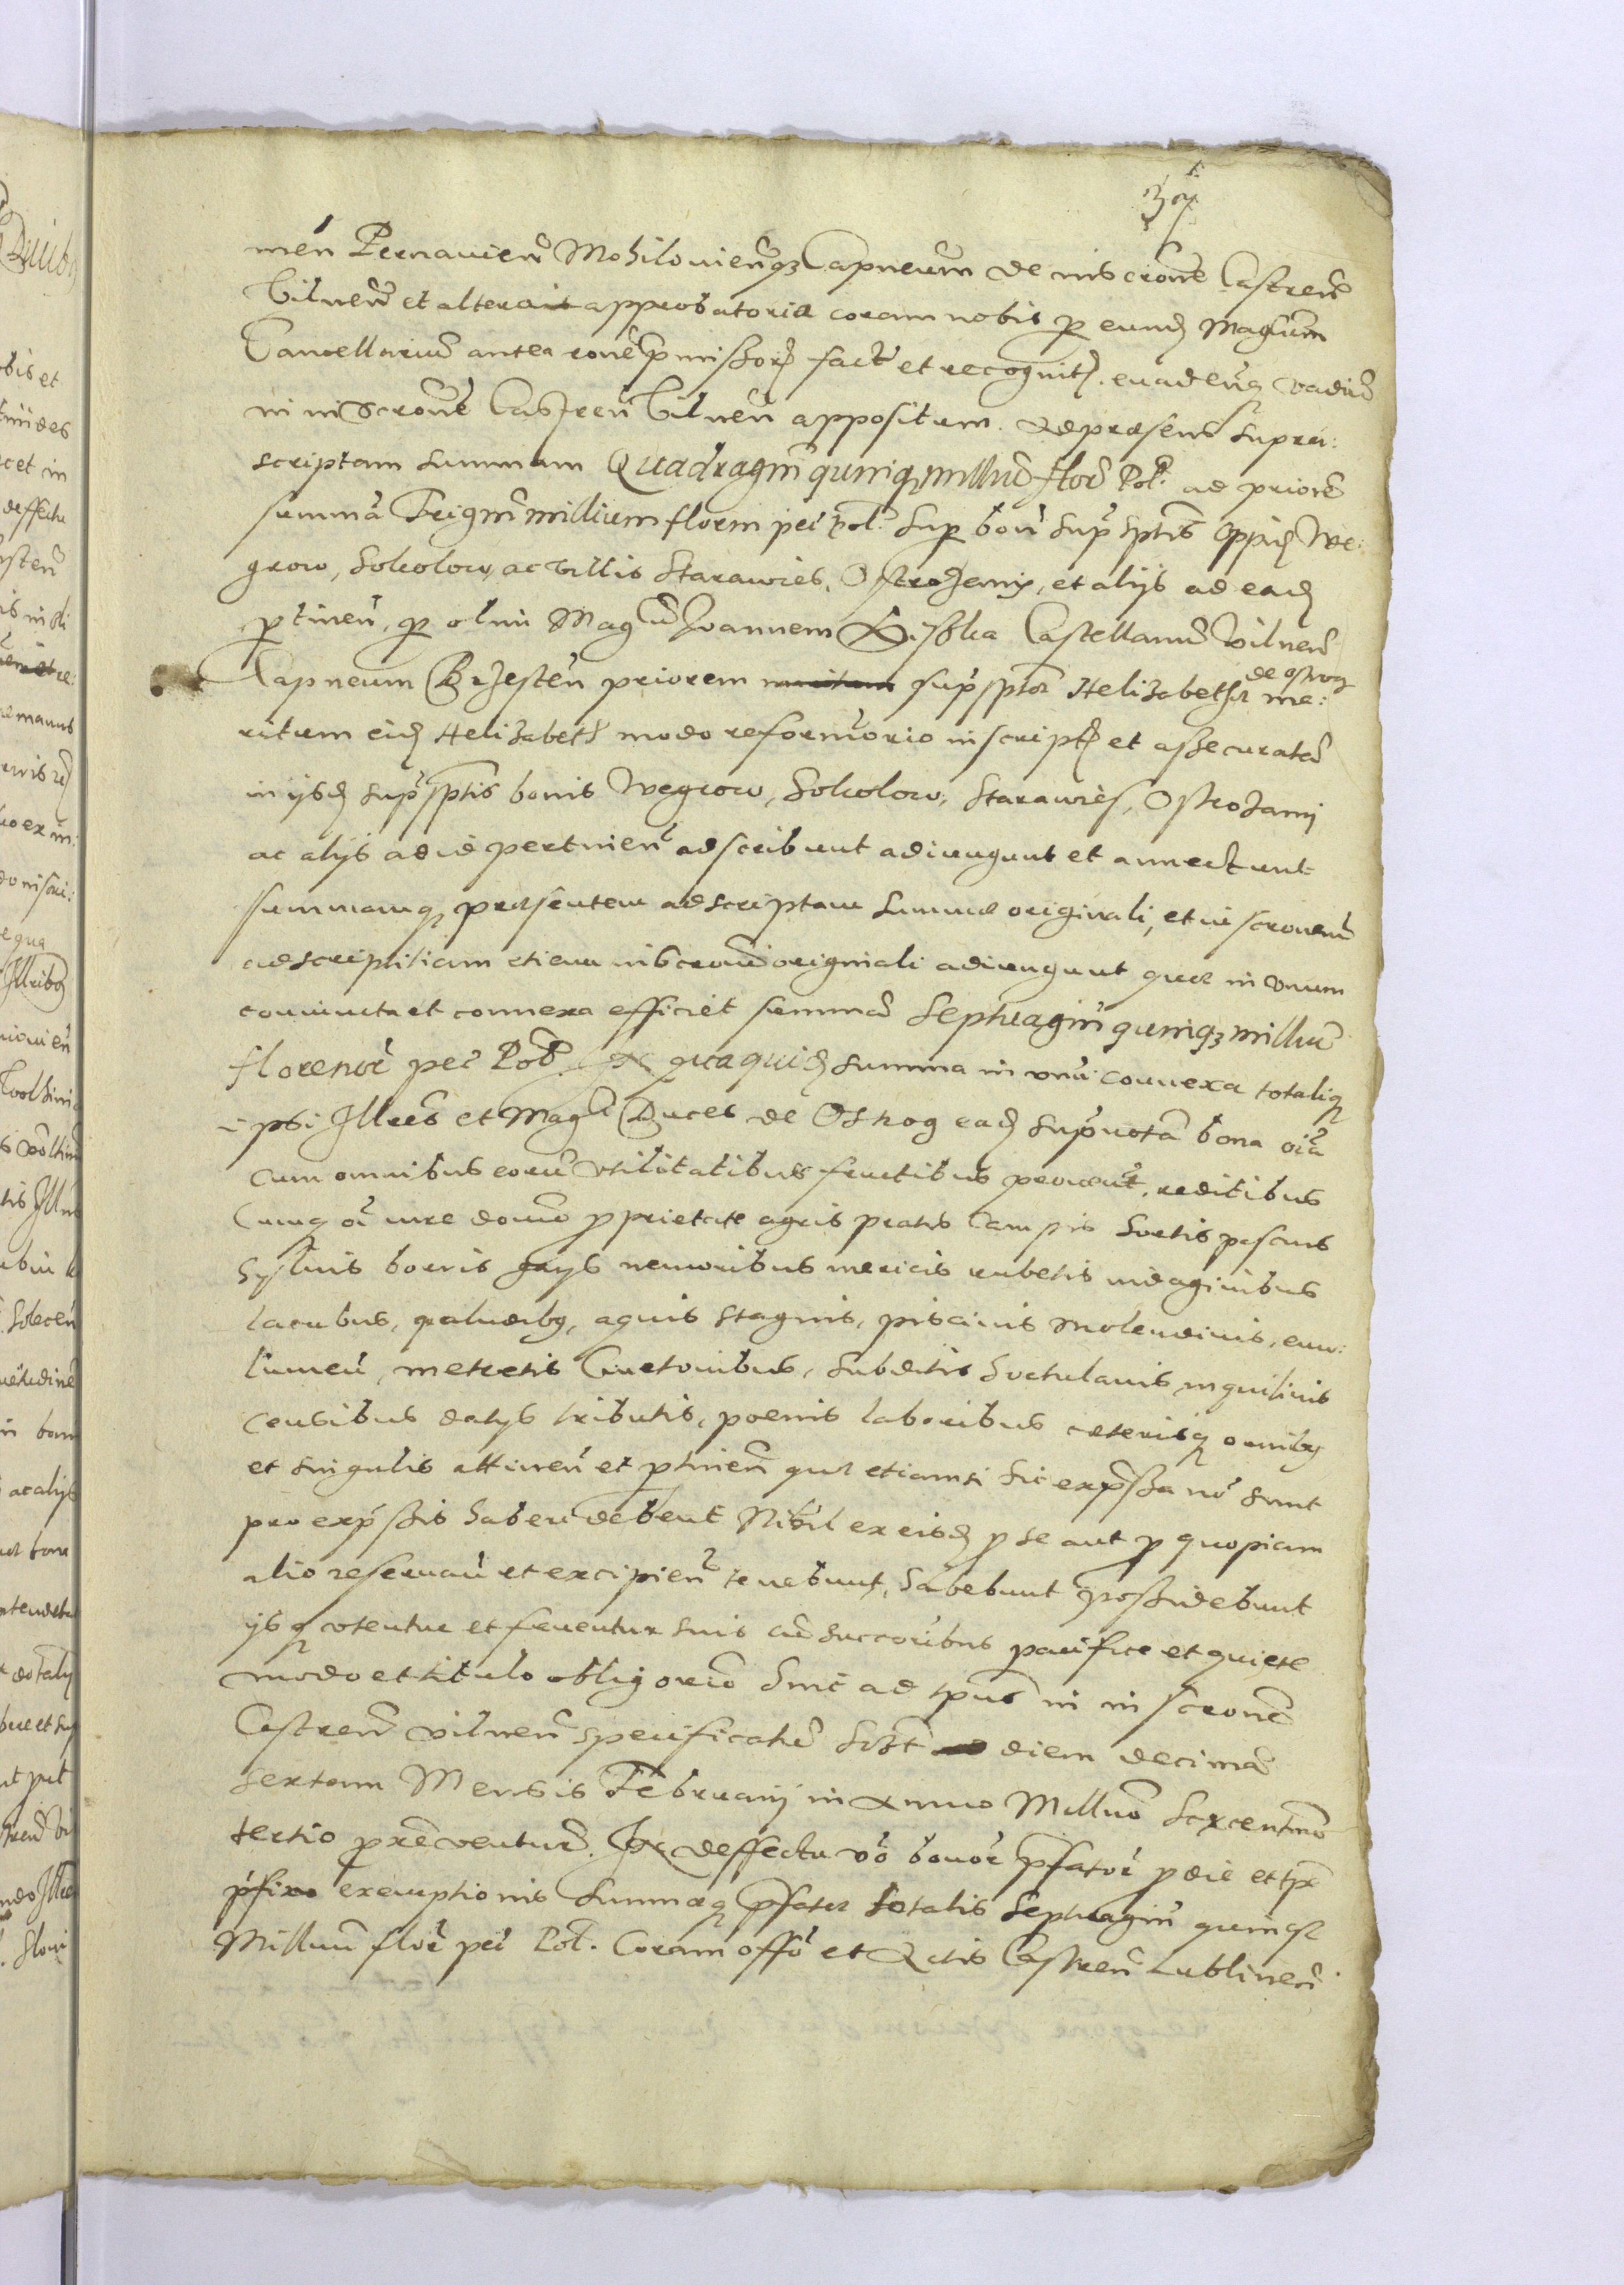 men Pernavien̄ Mohiloviens̄qȝ Capneum de inscrōne Castren̄
Vilnen̄ et altera approbatoria coram nobis per eund Magcum
Cancellarium antea rōne pmissor fact et recognit. evaden̄ vadiū
in inscrōne Castren̄ Vilnen̄ appositum. Ad praesens supra:
scriptam summam Quadragin̄ quinqȝ milliū flor̄ Pol: ad priorē
summā Trigin̄ millium florm pecc pol: sup bon̄ sup̄sptis oppid We:
grow, Sokolow, ac Villis Starawies, Ostrozany, et alijs ad ead
ptinen̄, per olim Magcū Joannem Kiszka Castellanū Vilnen̄
de ostrog
Capneum Brzesten̄ priorem sup̄sptae Helizabethae ma:
ritum eid Helizabeth modo reformorio inscript et assecuratā
in ijsd sup̄sptis bonis Wegrow, Sokolow, Starawies, Ostrozani
ac alijs ad id pertinen̄ adscribunt adiungunt et annectunt
summamqȝ praesentem adscriptam summae originali, et inscronem̄
adscriptitiam etiam inscrōni originali adiungunt quae in unum
coniuncta et connexa efficiet summā Septuagin̄ quinqȝ milliū
florenor̄ pecc Pol. In qua quid summa in unū connexa totaliqȝ
ipsi Illres et Magci Duces de Ostrog ead sup̄nota bona oīa
cum omnibus eorū utilitatibus fructibus provent, reditibus
Cumqȝ oī iure domo pprietate agris pratis Campis hortis pascuis
Syluis boris gays nemoribus mericis rubetis indaginibus
lacubus, paludibȝ, aquis stagnis, piscinis molendinis, emo:
lumen̄, metretis Cmetonibus, subditis hortulanis inquilinis
censibus datijs tributis, poenis laboribus caeterisqȝ omnibȝ
et singulis attinen̄ et ptinen̄ quae etiamsi hic expssa nō sunt
pro expssis haberi debent Nihil ex eisd p se aut p quopiam
alio reservan̄ et excipien̄ tenebunt, habebunt possidebunt
ijsqȝ utentur et fruentur suis cū succoribus pacifice et quiete
modo et titulo obligorio hinc ad tpus in inscrōne
Castren̄ Vilnen̄ specificatū diem decimā
sextam Mensis Februarij in Anno Millmo Sexcentmo
tertio pxe venturū. In deffectu vō bonor̄ pfator̄ p die et tpe
pfixo exemptionis summaeqȝ pfatae totalis Septuagin̄ quinqȝ
Millium flor̄ pecc Pol. Coram offo et Actis Castren̄ Lublinen̄.